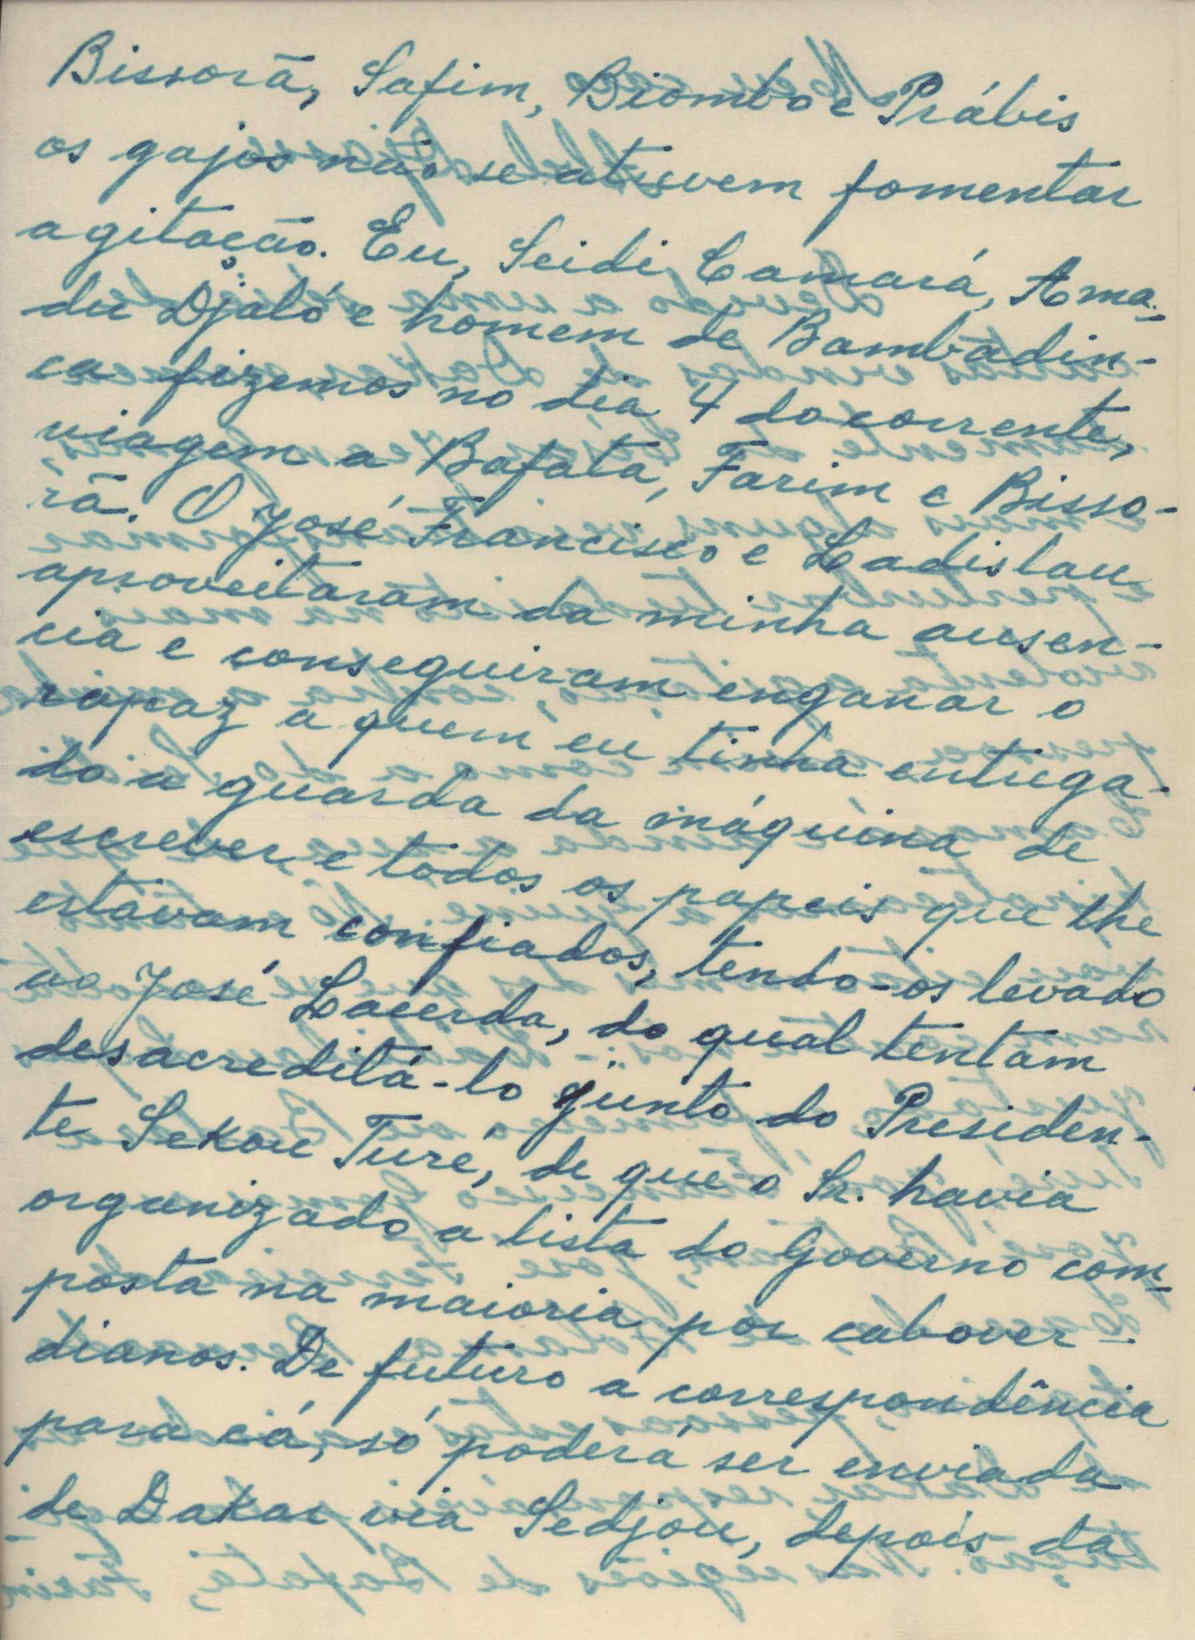 Bissorã, Safim, Biombo e Prábis
os gajos não se atrevem fomentar
agitação. Eu, Seidi Camará, Ama-
du Djaló e homem de Bambadin-
ca fizemos no dia 4 do corrente,
viagem a Bafata, Farim e Bisso-
rã. O José Francisco e Ladislau
aproveitaram da minha ausen-
cia e conseguiram enganar o
rapaz a quem eu tinha entrega-
do a guarda da máquina de
escrever, e todos os papeis que lhe
estávam confiados, tendo-os levado
ao José Lacerda, do qual tentam
desacreditá-lo junto do Presiden-
te Sekou Turé, de que o Sr. havia
organizado a lista do Governo com-
posta na maioria por cabover-
dianos. De futuro a correspondência
para cá, só poderá ser enviada
de Dakar via Sedjou, depois da